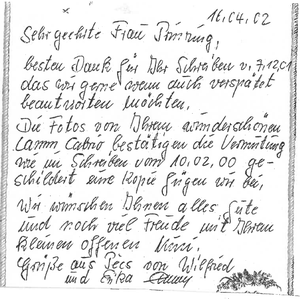 16.04.02
Sehr geehrte Frau
besten Dank für Ihr Schreiben v. 7.12.01
das wir gerne wenn auch verspätet
beantworten möchten.
Die Fotos von Ihrem wunderschönen
Lamm Cabrio bestätigen die Vermutung
wie im Schreiben vom 10.02.00 ge-
schildert eine Kopie fügen wir bei,
Wir wünschen Ihnen alles gute
und noch viel Freude mit Ihrem
kleinen offenen
Grüße aus Pècs von Wilfried
und Erika